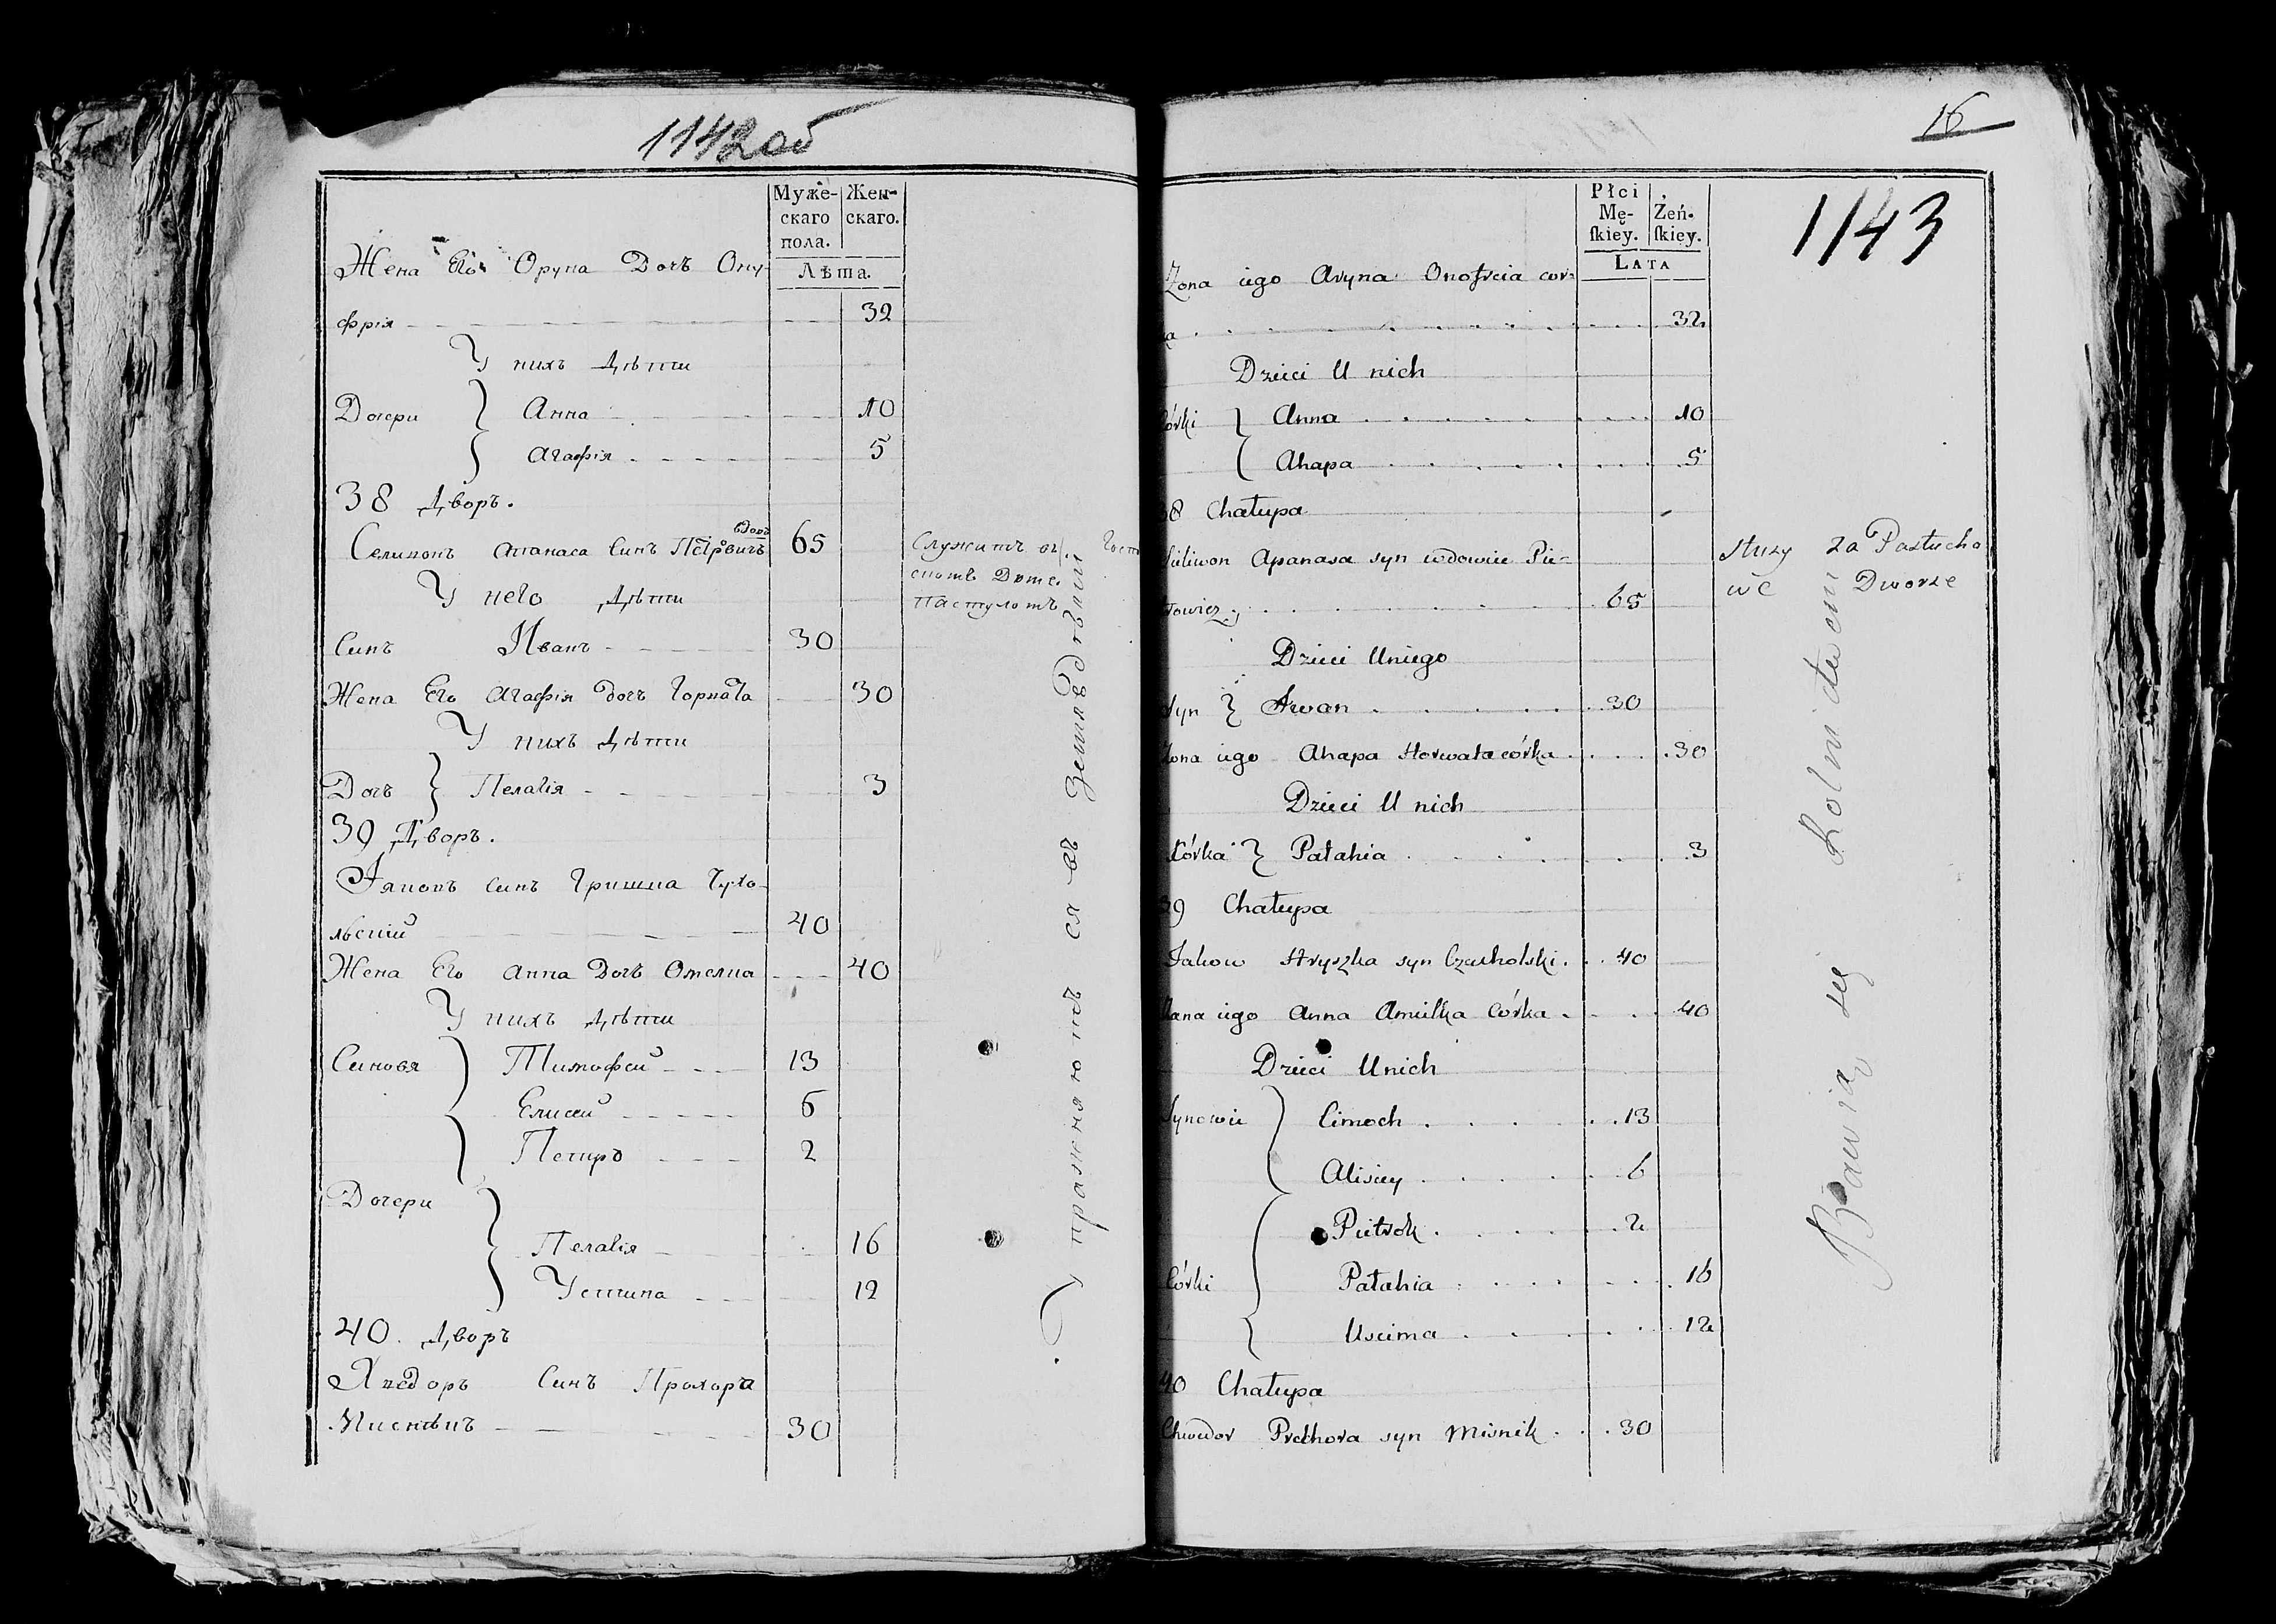 1142об
Муже-
скаго
пола.
Жен-
скаго.
Лѣта.
Жена Его Орына Дочъ Ону-
фрія 32
У нихъ Дѣти
Дочери Анна 10
Агафія 5
38 Дворъ.
вдовъ
Селивонъ Апанаса Синъ Петровичъ 65
Служитъ въ
Домѣ
Пастухомъ
У него Дѣти
Синъ Иванъ 30
Жена Его Агафія Дочъ 30
У нихъ Дѣти
Дочъ Пелагія 3
39 Дворъ.
Яковъ Синъ Гришка Чухо-
льский 40
Жена Его Анна Дочъ Омелка 40
У нихъ Дѣти
Синовя Тимофей 13
Елисей 6
Петро 2
Дочери
Пелагія 16
Устина 12
40. Дворъ
Хведоръ Синъ Прохора
Мисникъ 30
Упражняютъ ся въ Земледѣлии
16
1143
Płci
Mę-
ſkiey.
Żeń-
ſkiey.
LATA
Zona iego Aryna Onofreia cor-
ka 32
Dzieci U nich
Córki Anna 10
Ahapa 5
38 Chałupa
Sieliwon Apanasa syn wdowiec Pie-
trowicz 65
służy za Pastucha
we Dworze
Dzieci Uniego
Syn Iwan 30
Zona iego Ahapa Horwata córka 30
Dzieci U nich
Córka Pałahia 3
39 Chałupa
Jakow Hryszka syn Czucholski 40
Zona iego Anna Amiełka Córka 40
Dzieci Unich
Synowie Cimoch 13
Alisiey 6
Pietrok 2
Córki Pałahia 16
Uscima 12
40 Chałupa
Chwedor Prochora syn Misnik 30
Bawią się Rolnictwem